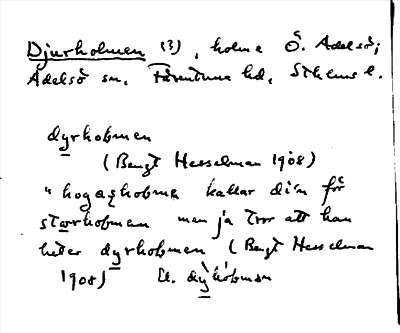 Djurholmen (?), holme Ö. Adelsö;
Adelsö sn, Färentuna hd, Sthlms l.
dyrhobmen
(Bengt Hesselman 1908)
"hogashobmen kallar di'n för
storrhobmen men ja tror att han
heter dyrhobmen (Bengt Hesselman
1908) el. dy̍hobmen